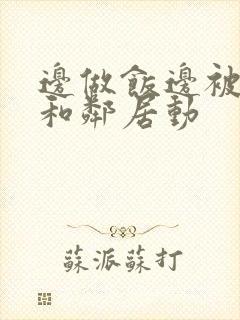 邊做飯邊被
和鄰居動
蘇派蘇打